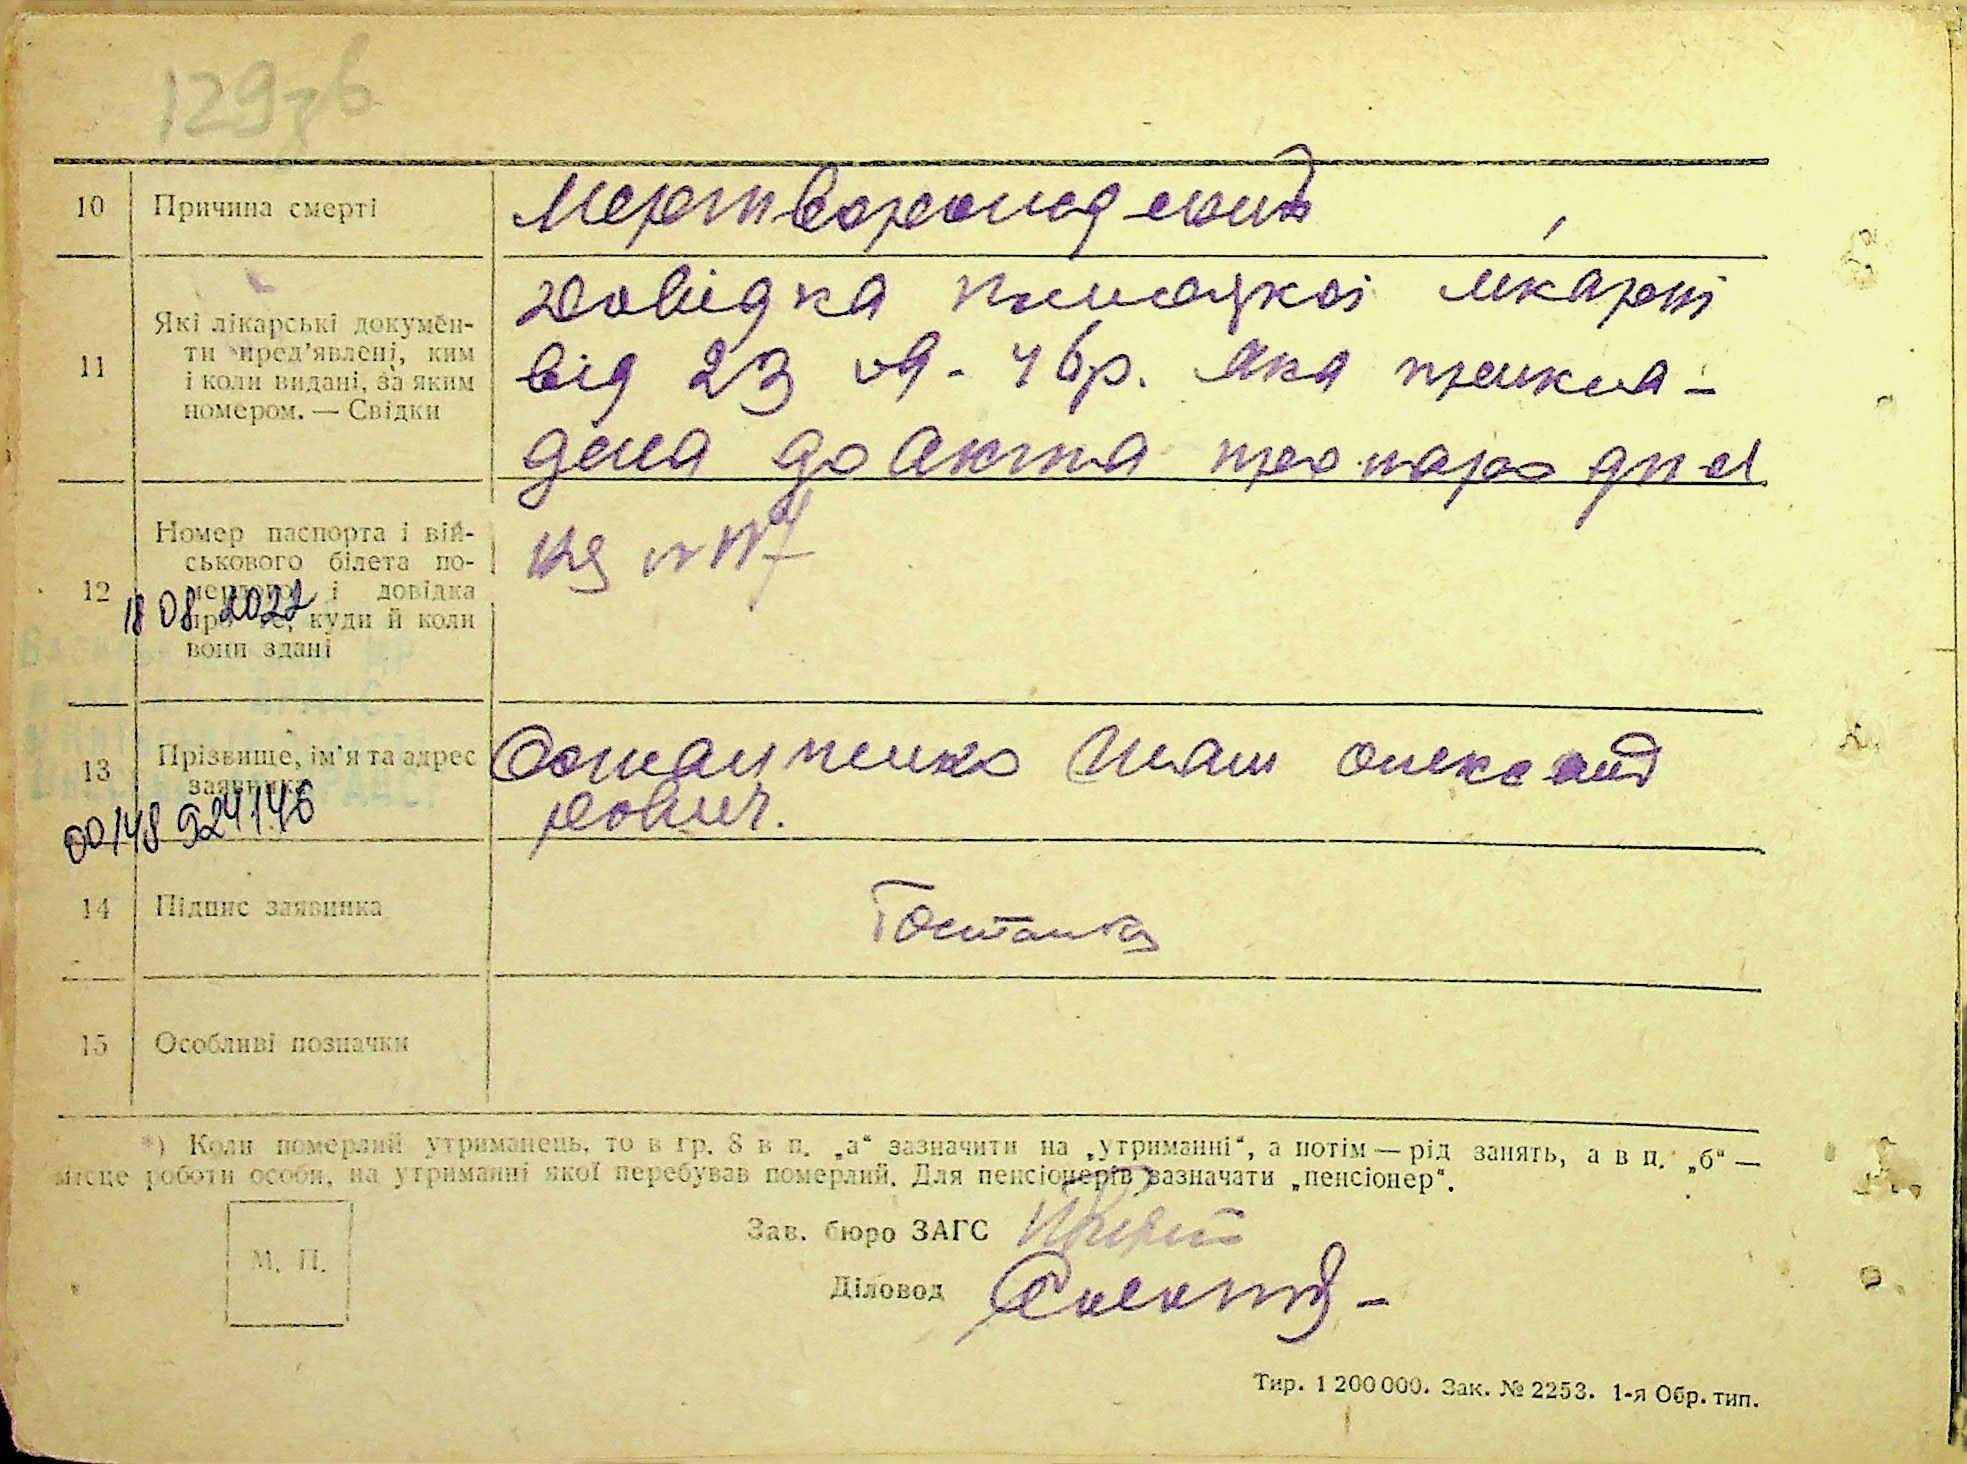 129зв
10 Причина смерті Мертворожденид
11 Які лікарські докумен- Довідка лікарні
ти пред'явлені, ким
і коли видані, за яким від 23 46р. Яка прикла-
номером. — Свідки
дена до акта про народ
12 Номер паспорта і вій-
ськового білета по-
мерлого і довідка
про те, куди й коли
вони здані
18 08 2022
13 Прізвище, ім'я та адрес Остапченко Іван Олександ
заявника рович.
00148 924146
14 Підпис заявника
15 Особливі позначки
*) Коли померлий утриманець, то в гр. 8 в п. „а“ зазначити на „утриманні“, а потім — рід занять, а в п. „б“ —
місце роботи особи, на утриманні якої перебував померлий. Для пенсіонерів зазначати „пенсіонер“.
Зав. бюро ЗАГС
М. П.
Діловод
Тир. 1 200 000. Зак. № 2253. 1-я Обр. тип.